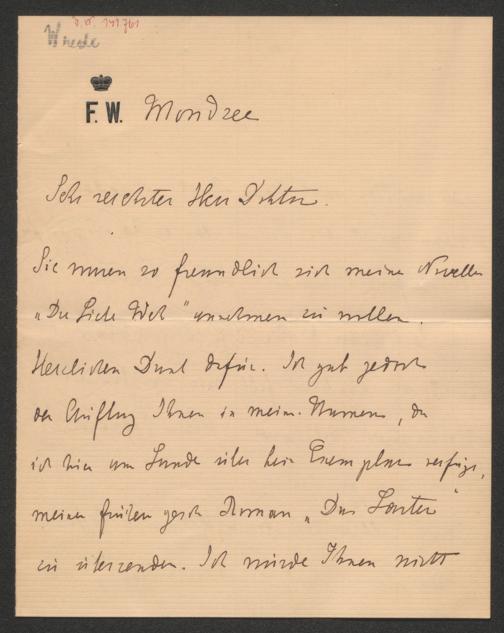 J. N. 141.761
Wrede
F. W. Mondsee
Sehr geehrter Herr Doktor.
Sie waren so freundlich sich meiner Novelle
„Die Liebe Welt" annehmen zu wollen.
Herzlichen Dank dafür. Ich gab jedoch
den Auftrag Ihnen in meinem Namen, da
ich hier am Lande über kein Exemplar verfüge,
meinen frühen Roman „Das Laster"
zu übersenden. Ich würde Ihnen nicht